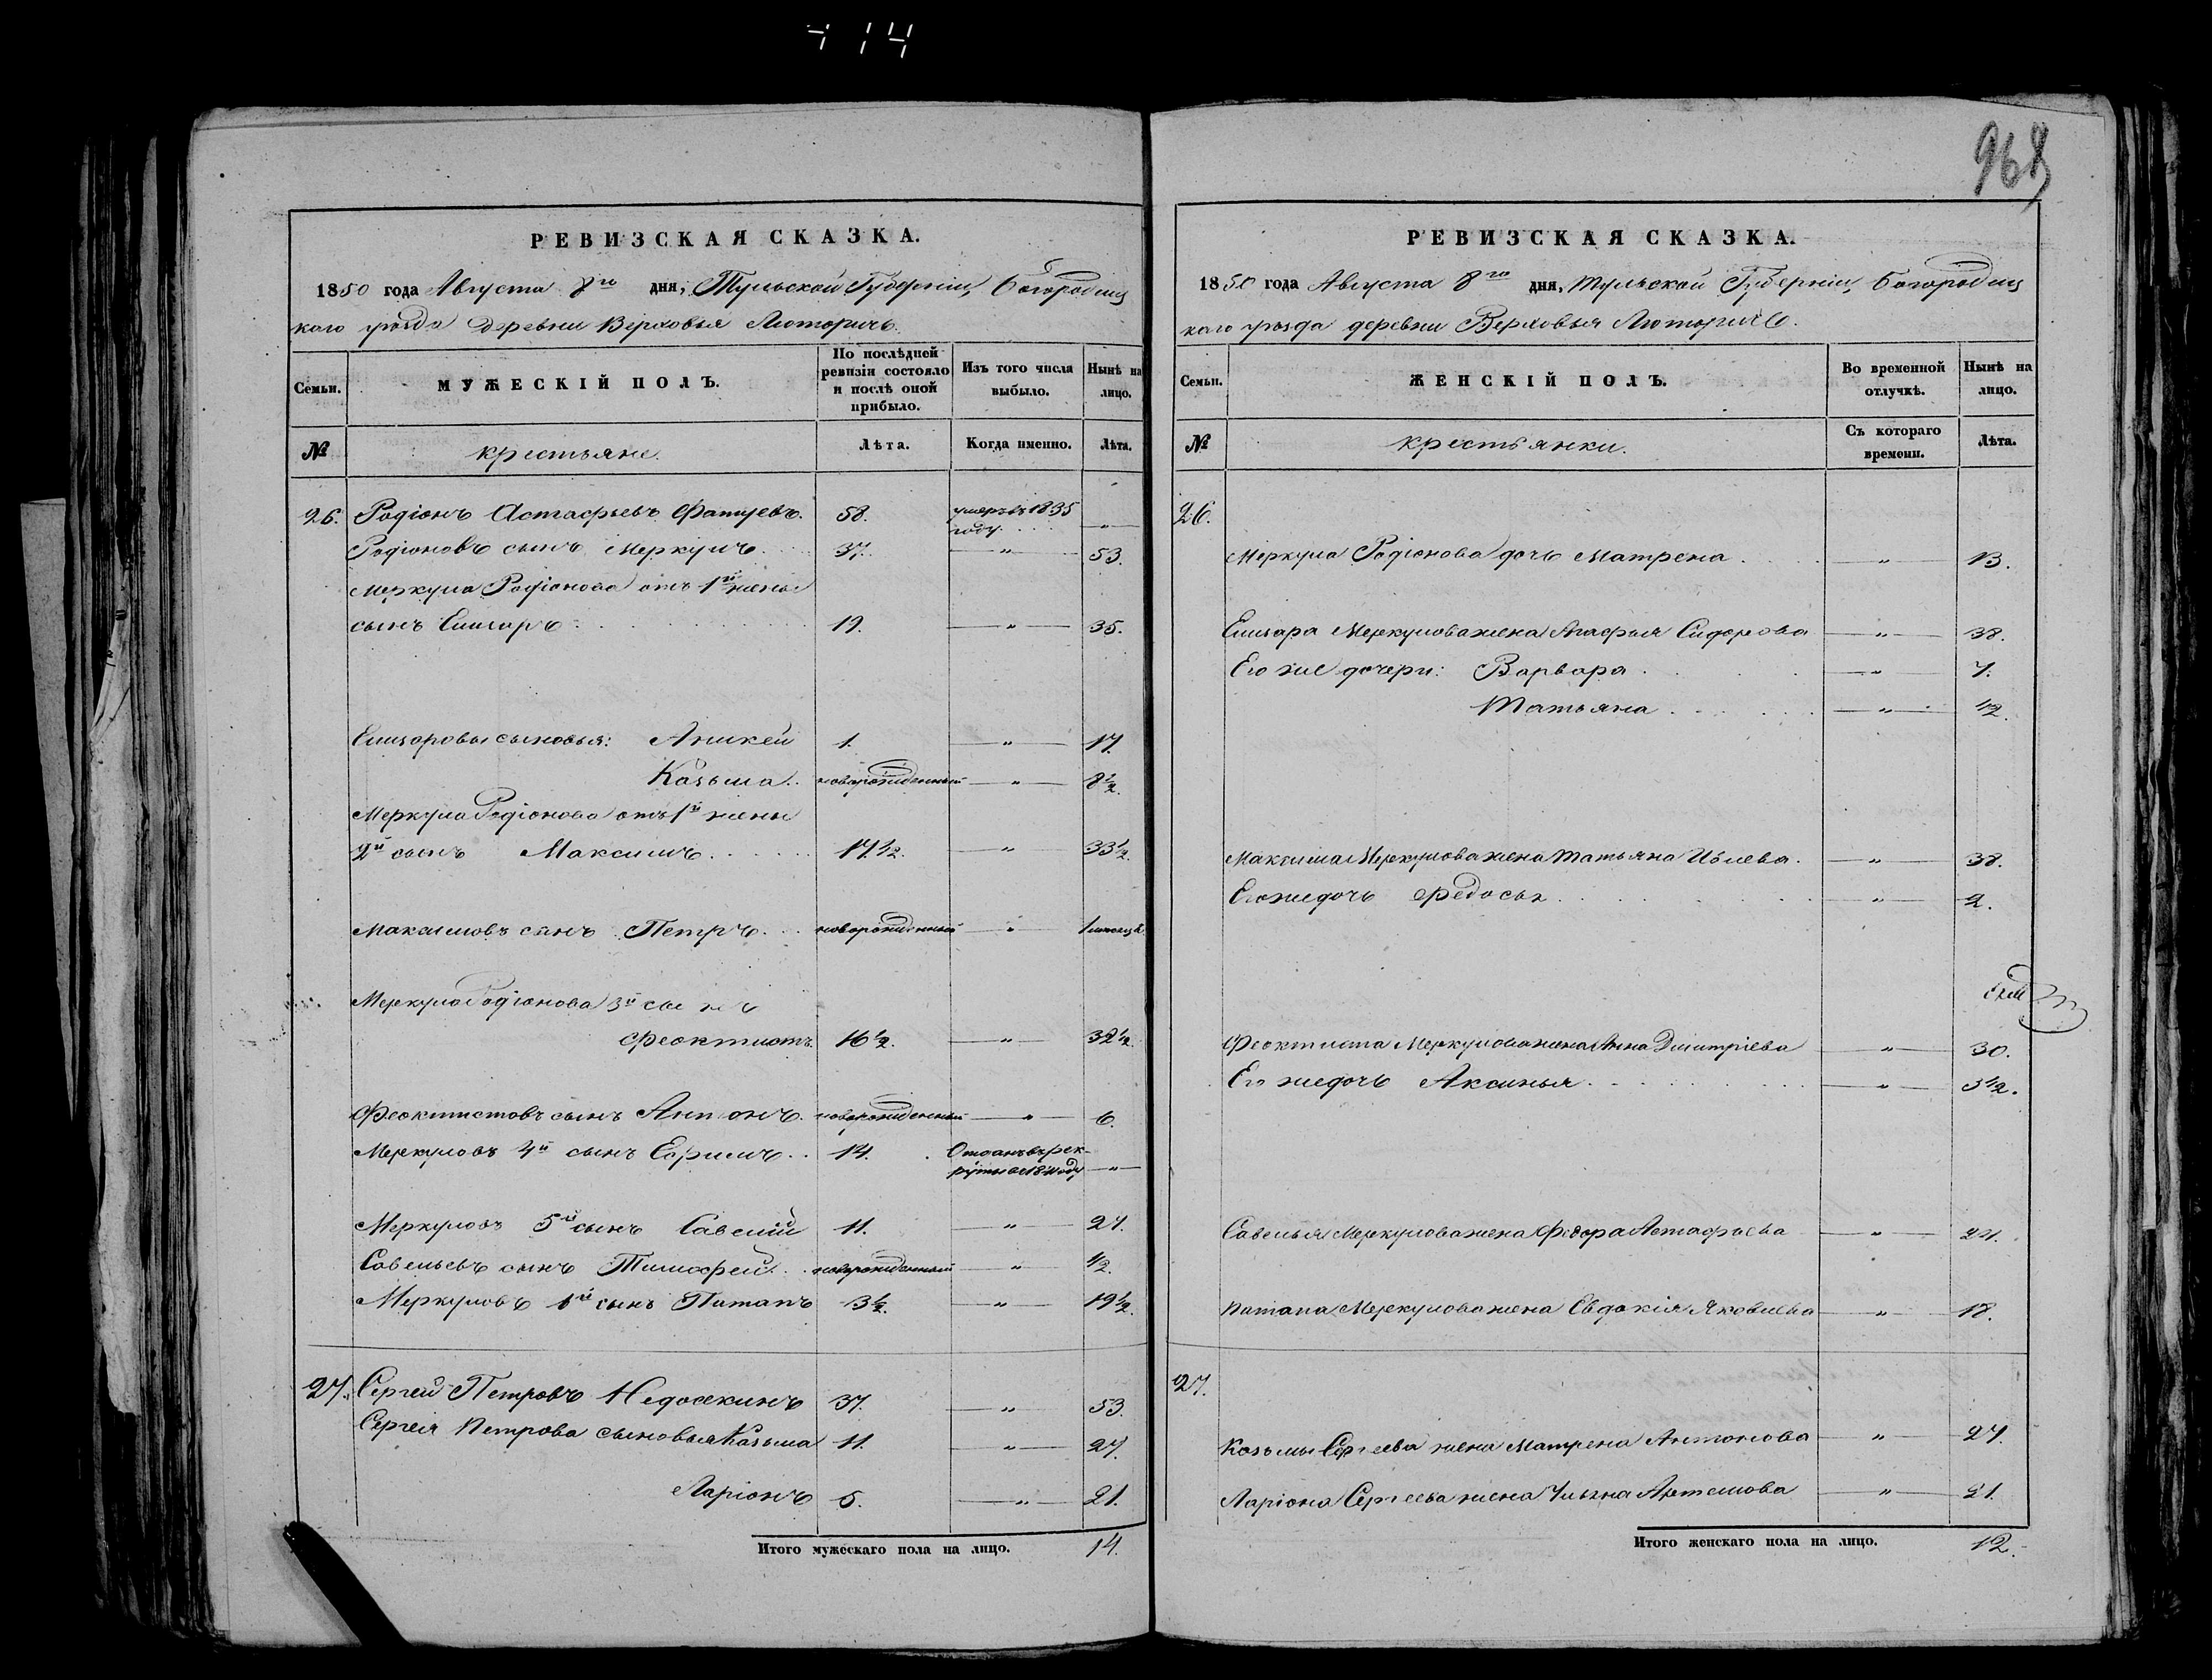 414
968
РЕВИЗСКАЯ СКАЗКА.
1850 года Августа 8го дня, Тульской Губерніи, Богородиц
каго уѣзда деревни Верховья Люторичь.
Семьи.
МУЖЕСКІЙ ПОЛЪ.
По послѣдней ревизіи состояло и послѣ оной прибыло.
Изъ того числа выбыло.
Нынѣ на лицо.
№
крестьяне.
Лѣта.
Когда именно.
Лѣта.
26. Родіонъ Астафьевъ Фатуевъ. 58. умеръ въ 1835 году. "
Родіоновъ сынъ Меркулъ 37. " 53.
Меркула Родіонова отъ 1й жены
сынъ Елизаръ 19. " 35.
Елизаровы сыновья: Аникей 1. " 17.
Козьма новорожденный " 8½.
Меркула Родіонова отъ 1й жены
2й сынъ Максимъ 17½. " 33½.
Максимовъ сынъ Петръ новорожденный " 1 мѣсяцъ.
Меркула Родіонова 3й сынъ
Феоктистъ 16½. " 32½.
Феоктистовъ сынъ Антонъ новорожденный " 6.
Меркуловъ 4й сынъ Ефимъ 14. Отданъ въ рек-
руты "
Меркуловъ 5й сынъ Савелій 11. " 27.
Савельевъ сынъ Тимофей новорожденный " ½.
Меркуловъ 6й сынъ Потапъ 3½. " 19½.
27. Сергей Петровъ Недосекинъ 37. " 53.
Сергея Петрова сыновья Козьма 11. " 27.
Ларіонъ 5. " 21.
Итого мужескаго пола на лицо. 14.
РЕВИЗСКАЯ СКАЗКА.
1850 года Августа 8го дня, Тульской Губерніи, Богородиц
каго уѣзда деревни Верховья Люторичь.
Семьи.
ЖЕНСКІЙ ПОЛЪ.
Во временной отлучкѣ.
Нынѣ на лицо.
№
крестьянки.
Съ котораго времени.
Лѣта.
26.
Меркула Родіонова дочь Матрена " 13.
Елизара Меркулова жена Агафья Сидорова " 38.
Его же дочери: Варвара " 7.
Татьяна " ½.
Максима Меркулова жена Татьяна Ивлева. " 38.
Его же дочь Федосья " 2.
Феоктиста Меркулова жена Анна Дмитріева " 30.
Его же дочь Аксинья " 3½.
Савелья Меркулова жена Федора Астафьева " 24.
Потапа Меркулова жена Евдокія Яковлева " 18.
27.
Козьмы Сергеева жена Матрена Антонова " 27.
Ларіона Сергеева жена Ульяна Артемова " 21.
Итого женскаго пола на лицо. 12.